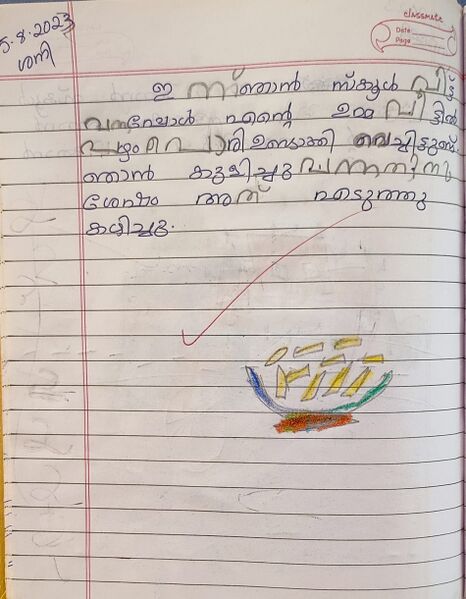 classmate
Date
Page
5.8.2023
ശനി
ഇ ന്ന് ഞാൻ സ്കൂൾ വിട്ട്
വന്നപ്പോൾ എന്റെ ഉമ്മ വീട്ടിൽ
പഴം പൊരി ഉണ്ടാക്കി വെച്ചിട്ടുണ്ട്.
ഞാൻ കുളിച്ചു വന്നതിനു
ശേഷം അത് എടുത്തു
കഴിച്ചു.